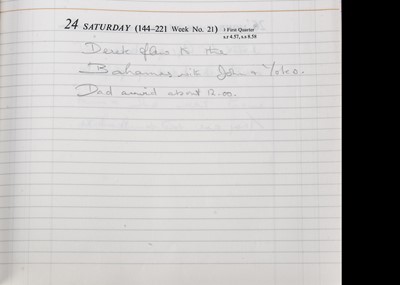 24 SATURDAY (144–221 Week No. 21) ☽ First Quarter
s.r 4.57, s.s 8.58
Derek flew to the
Bahamas with John & Yoko.
Dad arrived about 12.00.